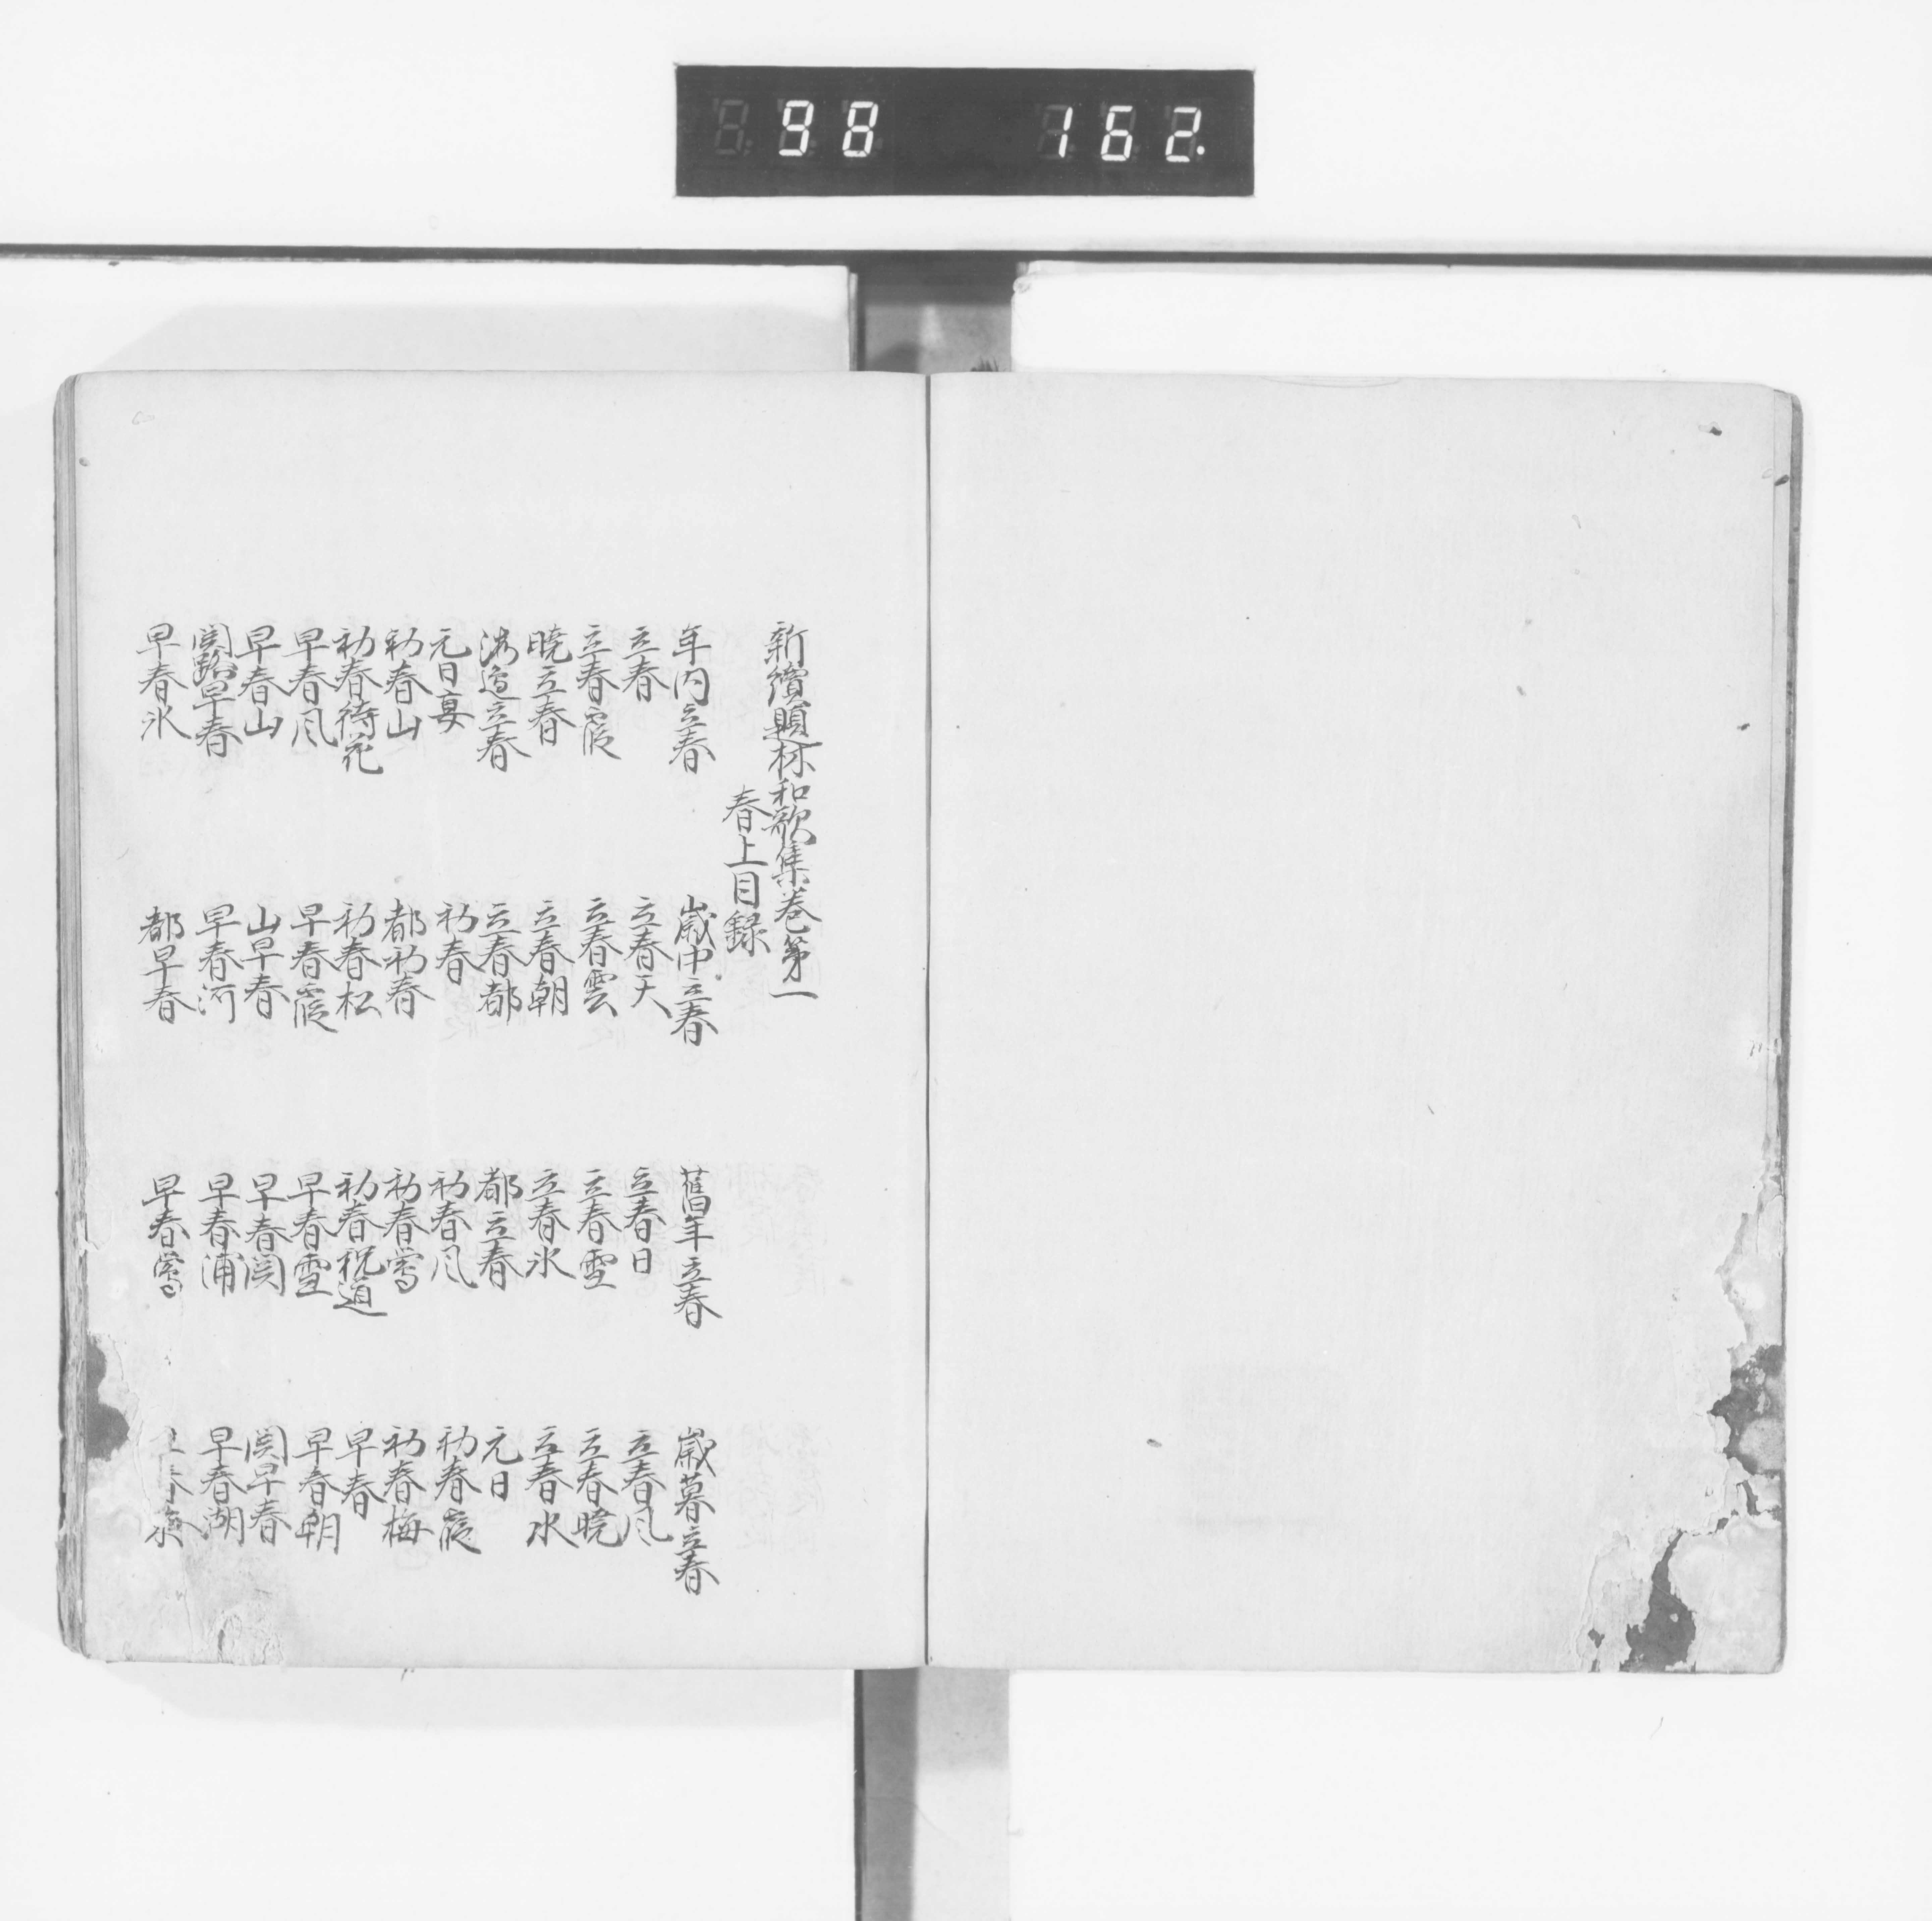 98 162.
新續題林和歌集巻第一
春上目録
年内立春 歳中立春 舊年立春 歳暮立春
立春 立春天 立春日 立春風
立春霞 立春雲 立春雪 立春暁
暁立春 立春朝 立春氷 立春水
海邊立春 立春都 都立春 元日
元日宴 初春 初春風 初春霞
初春山 都初春 初春鶯 初春梅
初春待花 初春松 初春祝道 早春
早春風 早春霞 早春雪 早春朝
早春山 山早春 早春関 関早春
関路早春 早春河 早春浦 早春湖
早春氷 都早春 早春鶯 春